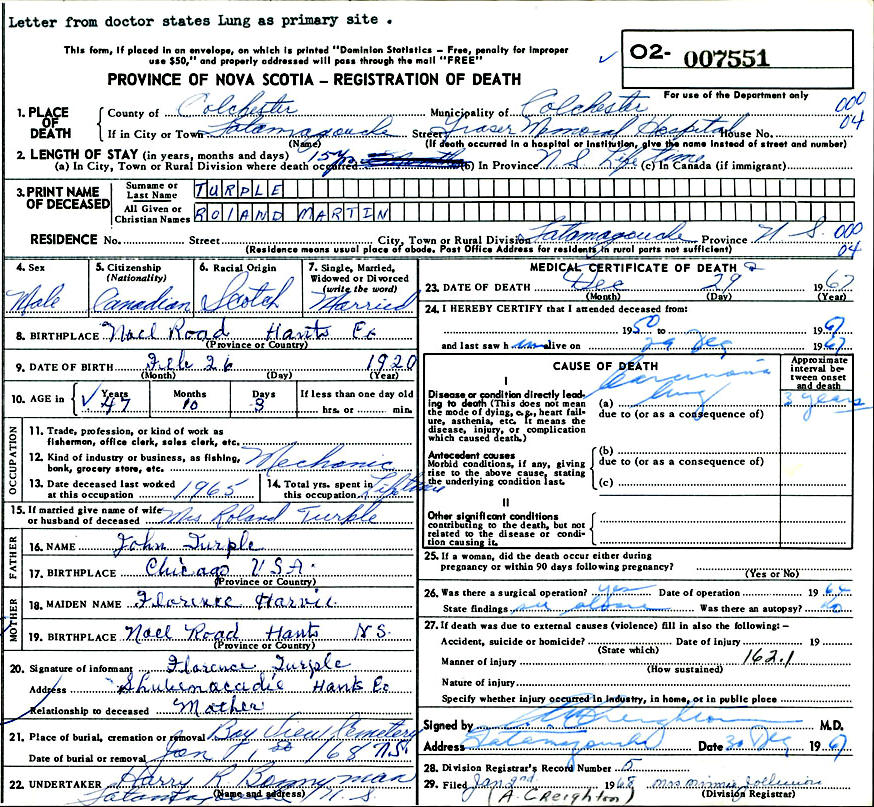 Letter from doctor states Lung as primary site .
This form, if placed in an envelope, on which is printed "Dominion Statistics – Free, penalty for improper
use $50," and properly addressed will pass through the mail "FREE"
O2- 007551
PROVINCE OF NOVA SCOTIA – REGISTRATION OF DEATH
For use of the Department only
1. PLACE OF DEATH County of Colchester Municipality of Colchester 000
If in City or Town Tatamagouche Street Fraser Memorial Hospital House No. 04
(Name) (If death occurred in a hospital or institution, give the name instead of street and number)
2. LENGTH OF STAY (in years, months and days) 15 yr N S Life time
(a) In City, Town or Rural Division where death occurred (b) In Province (c) In Canada (if immigrant)
3. PRINT NAME OF DECEASED Surname or Last Name TURPLE
All Given or Christian Names ROLAND MARTIN
RESIDENCE No. Street City, Town or Rural Division Tatamagouche Province N S. 000
(Residence means usual place of abode. Post Office Address for residents in rural parts not sufficient) 04
4. Sex 5. Citizenship (Nationality) 6. Racial Origin 7. Single, Married, Widowed or Divorced (write the word)
Male Canadian Scotch Married
8. BIRTHPLACE Noel Road Hants Co
(Province or Country)
9. DATE OF BIRTH Feb 26 1920
(Month) (Day) (Year)
10. AGE in Years Months Days If less than one day old
47 10 3 hrs. or min.
OCCUPATION
11. Trade, profession, or kind of work as
fishermen, office clerk, sales clerk, etc.
12. Kind of industry or business, as fishing,
bank, grocery store, etc. Mechanic
13. Date deceased last worked at this occupation 1965 14. Total yrs. spent in this occupation Lifetime
15. If married give name of wife
or husband of deceased Mrs Roland Turple
FATHER
16. NAME John Turple
17. BIRTHPLACE Chicago USA.
(Province or Country)
MOTHER
18. MAIDEN NAME Florence Harvie
19. BIRTHPLACE Noel Road Hants NS.
(Province or Country)
20. Signature of informant Florence Turple
Address Shubenacadie Hants Co
Relationship to deceased Mother
21. Place of burial, cremation or removal Bay View Cemetery
Date of burial or removal Jan 1st 1968 N.S.
22. UNDERTAKER Harry R Bonnyman
Tatamagouche N. S.
(Name and address)
MEDICAL CERTIFICATE OF DEATH
23. DATE OF DEATH Dec 29 1967
(Month) (Day) (Year)
24. I HEREBY CERTIFY that I attended deceased from:
1950 to 1967
and last saw him alive on 29 Dec 1967
CAUSE OF DEATH Approximate interval between onset and death
I
Disease or condition directly leading to death (This does not mean the mode of dying, e.g., heart failure, asthenia, etc. It means the disease, injury, or complication which caused death.)
(a) Carcinoma lung 3 years
due to (or as a consequence of)
Antecedent causes
Morbid conditions, if any, giving rise to the above cause, stating the underlying condition last.
(b)
due to (or as a consequence of)
(c)
II
Other significant conditions
contributing to the death, but not related to the disease or condition causing it.
25. If a woman, did the death occur either during
pregnancy or within 90 days following pregnancy?
(Yes or No)
26. Was there a surgical operation? yes Date of operation 1964
State findings see above Was there an autopsy? no
27. If death was due to external causes (violence) fill in also the following: –
Accident, suicide or homicide? Date of injury 19
(State which)
Manner of injury 162.1
(How sustained)
Nature of injury
Specify whether injury occurred in Industry, in home, or in public place
Signed by A Creighton M.D.
Address Tatamagouche Date 30 Dec 1967
28. Division Registrar's Record Number 5
29. Filed Jan 2nd 1968 Mrs Minnie
(A. CReighton) (Division Registrar)